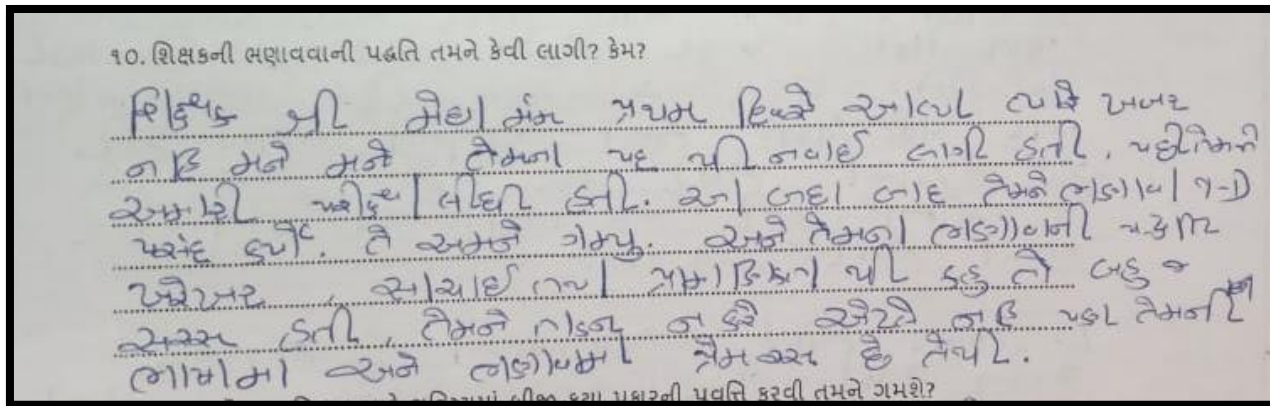 ૧૦. શિક્ષકની ભણાવવાની પદ્ધતિ તમને કેવી લાગી? કેમ?
શિક્ષક શ્રી મેઘા મેમ પ્રથમ દિવસે આવ્યા ત્યારે ખબર
નહિ મને મને તેમના પદ થી નવાઈ લાગી હતી. પછી તેમને
અમારી પરીક્ષા લીધી હતી. આ બધા બાદ તેમને ભણાવા ૧-D
પસંદ કર્યો. તે અમને ગમ્યુ. અને તેમના ભણાવાની
ખરેખર, સાચાઈ તથા થી કહુ તો બહુ જ
સરસ હતી. તેમને ન કરે એટલે નહિ પણ તેમની
ભાષામા અને ભણાવામા પ્રેમ રસ છે તેથી.
બીજી કયા પ્રકારની પ્રવૃત્તિ કરવી તમને ગમશે?